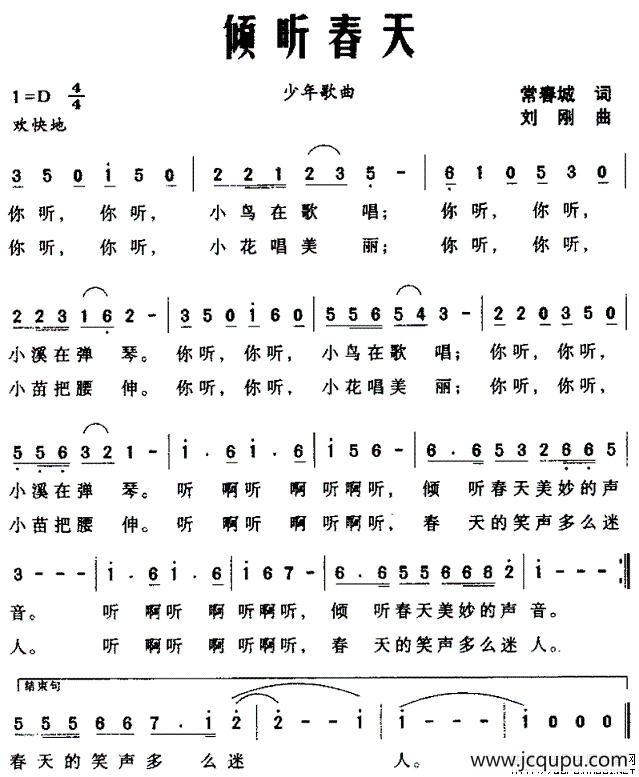 倾听春天
1=D 4/4 少年歌曲 常春城 词
欢快地 刘刚 曲
3 5 0 i 5 0 | 2 2 1 2 3 5 - | 6 1 0 5 3 0 |
你听， 你听， 小鸟在歌 唱； 你听， 你听，
你听， 你听， 小花唱美 丽； 你听， 你听，
2 2 3 1 6 2 - | 3 5 0 i 6 0 | 5 5 6 5 4 3 - | 2 2 0 3 5 0 |
小溪在弹 琴。 你听， 你听， 小鸟在歌 唱； 你听， 你听，
小苗把腰 伸。 你听， 你听， 小花唱美 丽； 你听， 你听，
5 5 6 3 2 1 - | i . 6 i . 6 | i 5 6 - | 6 . 6 5 3 2 6 6 5 |
小溪在弹 琴。 听 啊听 啊 听啊听， 倾 听春天美妙的声
小苗把腰 伸。 听 啊听 啊 听啊听， 春 天的笑声多么迷
3 - - - | i . 6 i . 6 | i 6 7 - | 6 . 6 5 5 6 6 8 2 | i - - - :||
音。 听 啊听 啊 听啊听， 倾 听春天美妙的声 音。
人。 听 啊听 啊 听啊听， 春 天的笑声多么迷 人。
结束句
5 5 5 5 6 6 7 . i 2 | 2 - - i | i - - - | i 0 0 0 ||
春天的笑声多 么迷 人。
www.jcqupu.com